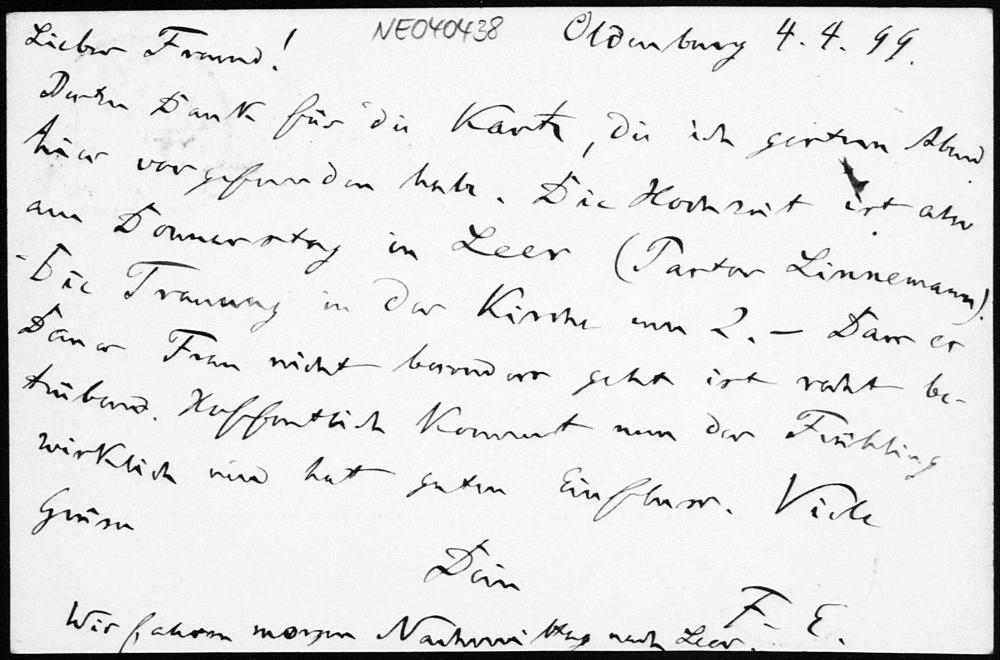 NE040438
Oldenburg 4. 4. 99.
Lieber Freund!
Besten Dank für die Karte, die ich gestern Abend
hier vorgefunden habe. Die Hochzeit ist also
am Donnerstag in Leer (Pastor Linnemann).
Die Trauung in der Kirche um 2. — Dass es
Deiner Frau nicht besonders geht ist recht be-
trübend. Hoffentlich kommt nun der Frühling
wirklich und hat guten Einfluss. Viele
Grüsse
Dein
F. E.
Wir fahren morgen Nachmittag nach Leer.